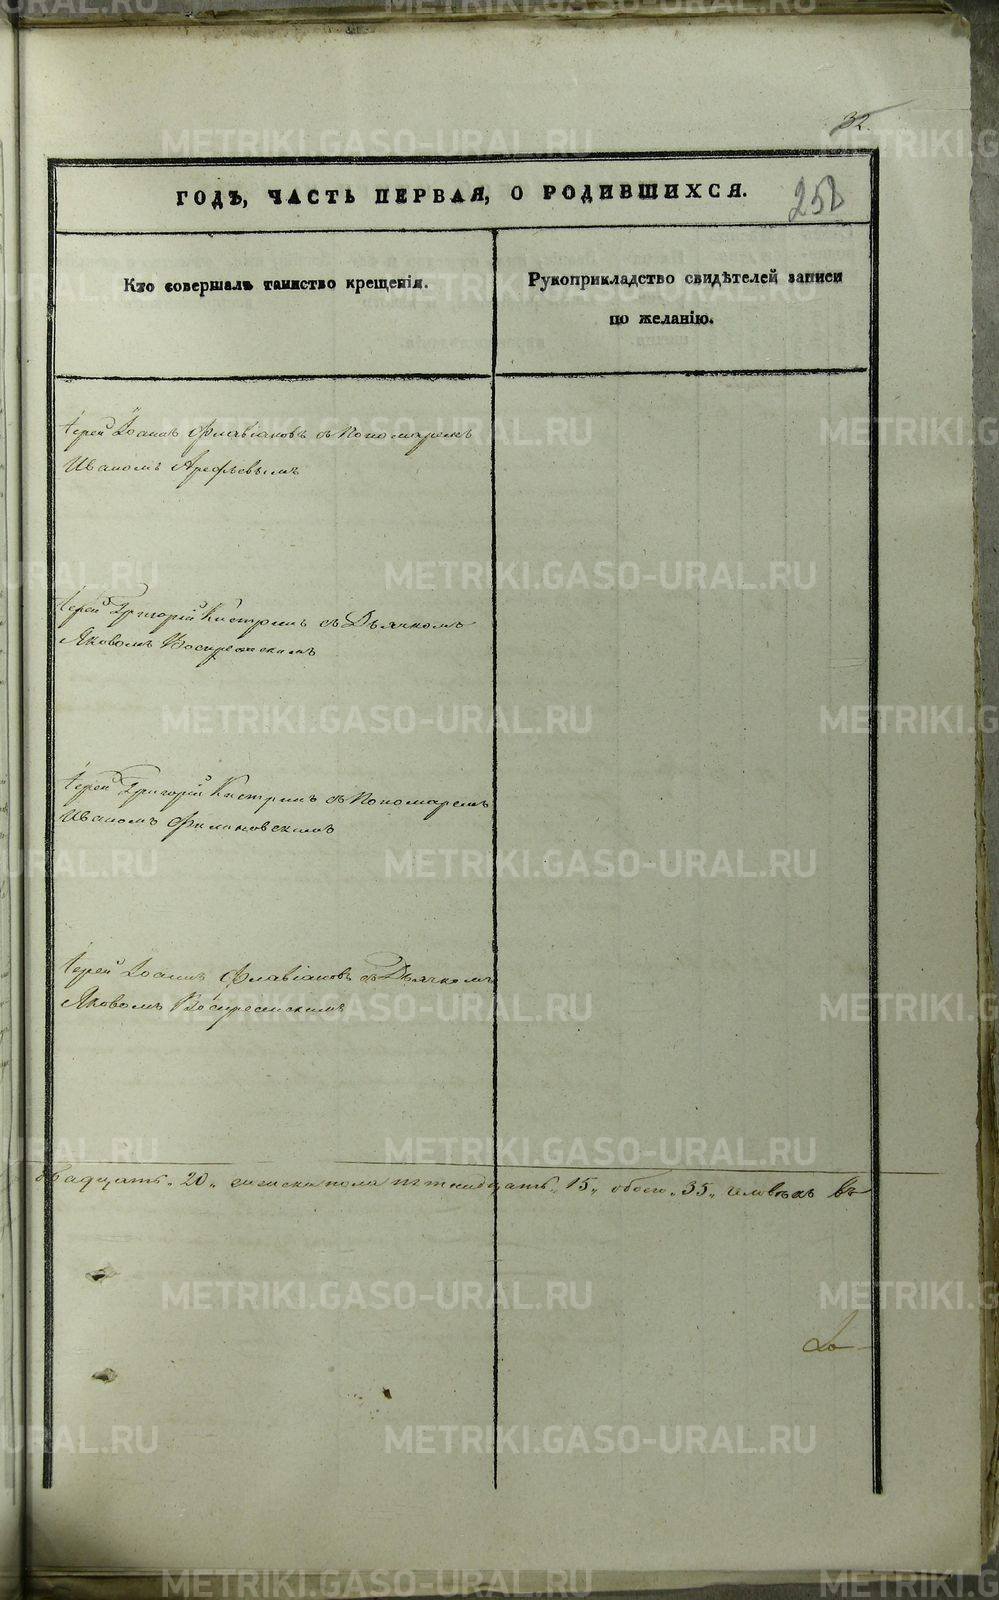 32
ГОДЪ, ЧАСТЬ ПЕРВАЯ, О РОДИВШИХСЯ.
258
Кто совершалъ таинство крещенія.
Рукоприкладство свидѣтелей записи
по желанію.
Іерей Іоаннъ Флавіановъ съ Пономаремъ
Иваномъ Арефьевымъ
Іерей Григорій съ Дьячкомъ
Яковомъ Воскресенскимъ
Іерей Григорій съ Пономаремъ
Иваномъ
Іерей Іоаннъ Флавіановъ съ Дьячкомъ
Яковомъ Воскресенскимъ
двадцать „20„ женска пола пятнадцать „15„ обоего „35„ человѣкъ въ
METRIKI.GASO-URAL.RU